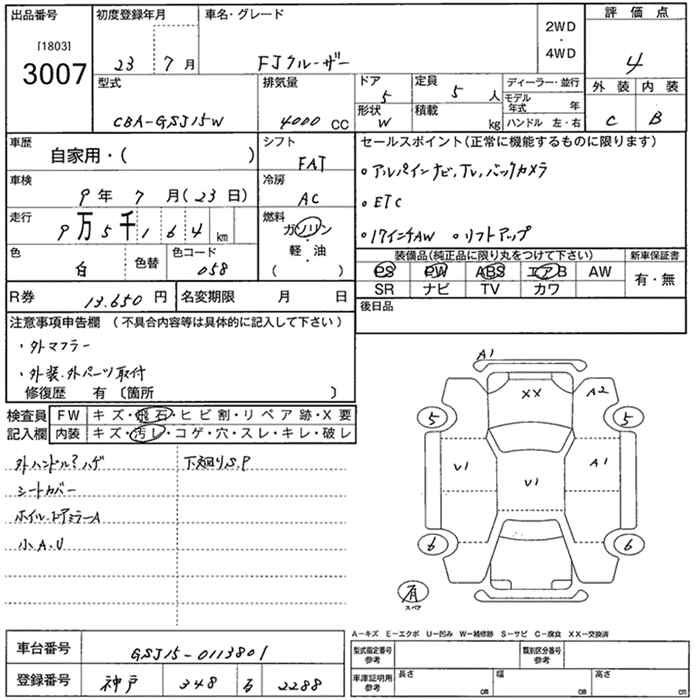 出品番号
[1803]
3007
初度登録年月
23 7月
車名・グレード
FJクルーザー
2WD
・
4WD
評価点
4
外装 内装
C B
型式
CBA-GSJ15W
排気量
4000 CC
ドア
5
形状
W
定員
5 人
積載
kg
ディーラー・並行
モデル年式 年
ハンドル 左・右
車歴
自家用・( )
シフト
FAT
車検
9年 7月(23日)
冷房
AC
走行
9万5千164km
燃料
ガソリン
軽・油
( )
色
白
色替
色コード
058
R券
13.650円
名変期限 月 日
セールスポイント(正常に機能するものに限ります)
○アルパインナビ,TV,バックカメラ
○ETC
○17インチAW ○リフトアップ
装備品(純正品に限り丸をつけて下さい)
PS PW ABS エアB AW
SR ナビ TV カワ
新車保証書
有・無
後日品
注意事項申告欄 (不具合内容等は具体的に記入して下さい)
・外マフラー
・外装.外パーツ取付
修復歴 有 〔箇所 〕
検査員
記入欄
FW キズ・飛石・ヒビ割・リペア跡・X要
内装 キズ・汚レ・コゲ・穴・スレ・キレ・破レ
外ハンドル?ハゲ
下廻りS,P
シートカバー
ホイル.ドアミラーA
小A.U
A1
XX
A2
5
5
U1
U1
A1
6
6
有
スペア
A−キズ E−エクボ U−凹み W−補修跡 S−サビ C−腐食 XX−交換済
車台番号
GSJ15-0113801
登録番号
神戸 348 る 2288
型式指定番号
参考
類別区分番号
参考
車庫証明用
参考
長さ cm
幅 cm
高さ cm